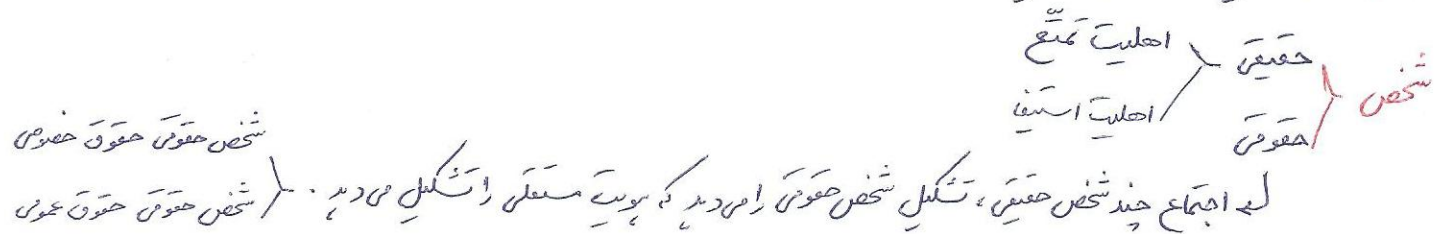 شخص
حقیقی
اهلیت تمتّع
اهلیت استیفا
حقوقی
اجتماع چند شخص حقیقی، تشکیل شخص حقوقی را می‌دهد که هویت مستقلی را تشکیل می‌دهد.
شخص حقوقی حقوق خصوصی
شخص حقوقی حقوق عمومی